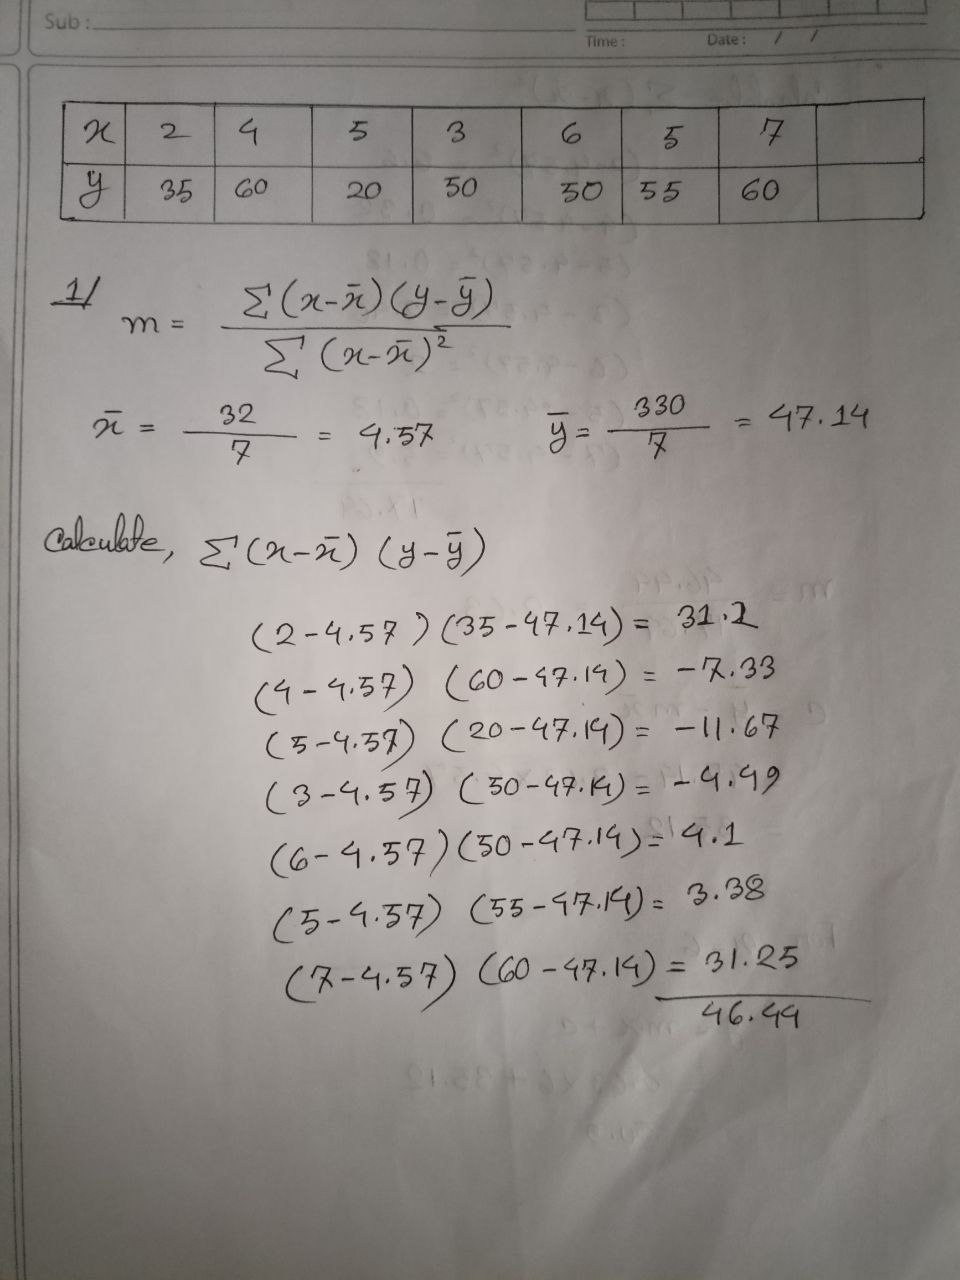 Sub :
Time : Date : / /
x 2 4 5 3 6 5 7
y 35 60 20 50 50 55 60
1/ m = Σ(x-x̄)(y-ȳ) / Σ(x-x̄)²
x̄ = 32/7 = 4.57 ȳ = 330/7 = 47.14
Calculate, Σ(x-x̄) (y-ȳ)
(2-4.57) (35-47.14) = 31.2
(4-4.57) (60-47.14) = -7.33
(5-4.57) (20-47.14) = -11.67
(3-4.57) (50-47.14) = -4.49
(6-4.57) (50-47.14) = 4.1
(5-4.57) (55-47.14) = 3.38
(7-4.57) (60-47.14) = 31.25
46.44